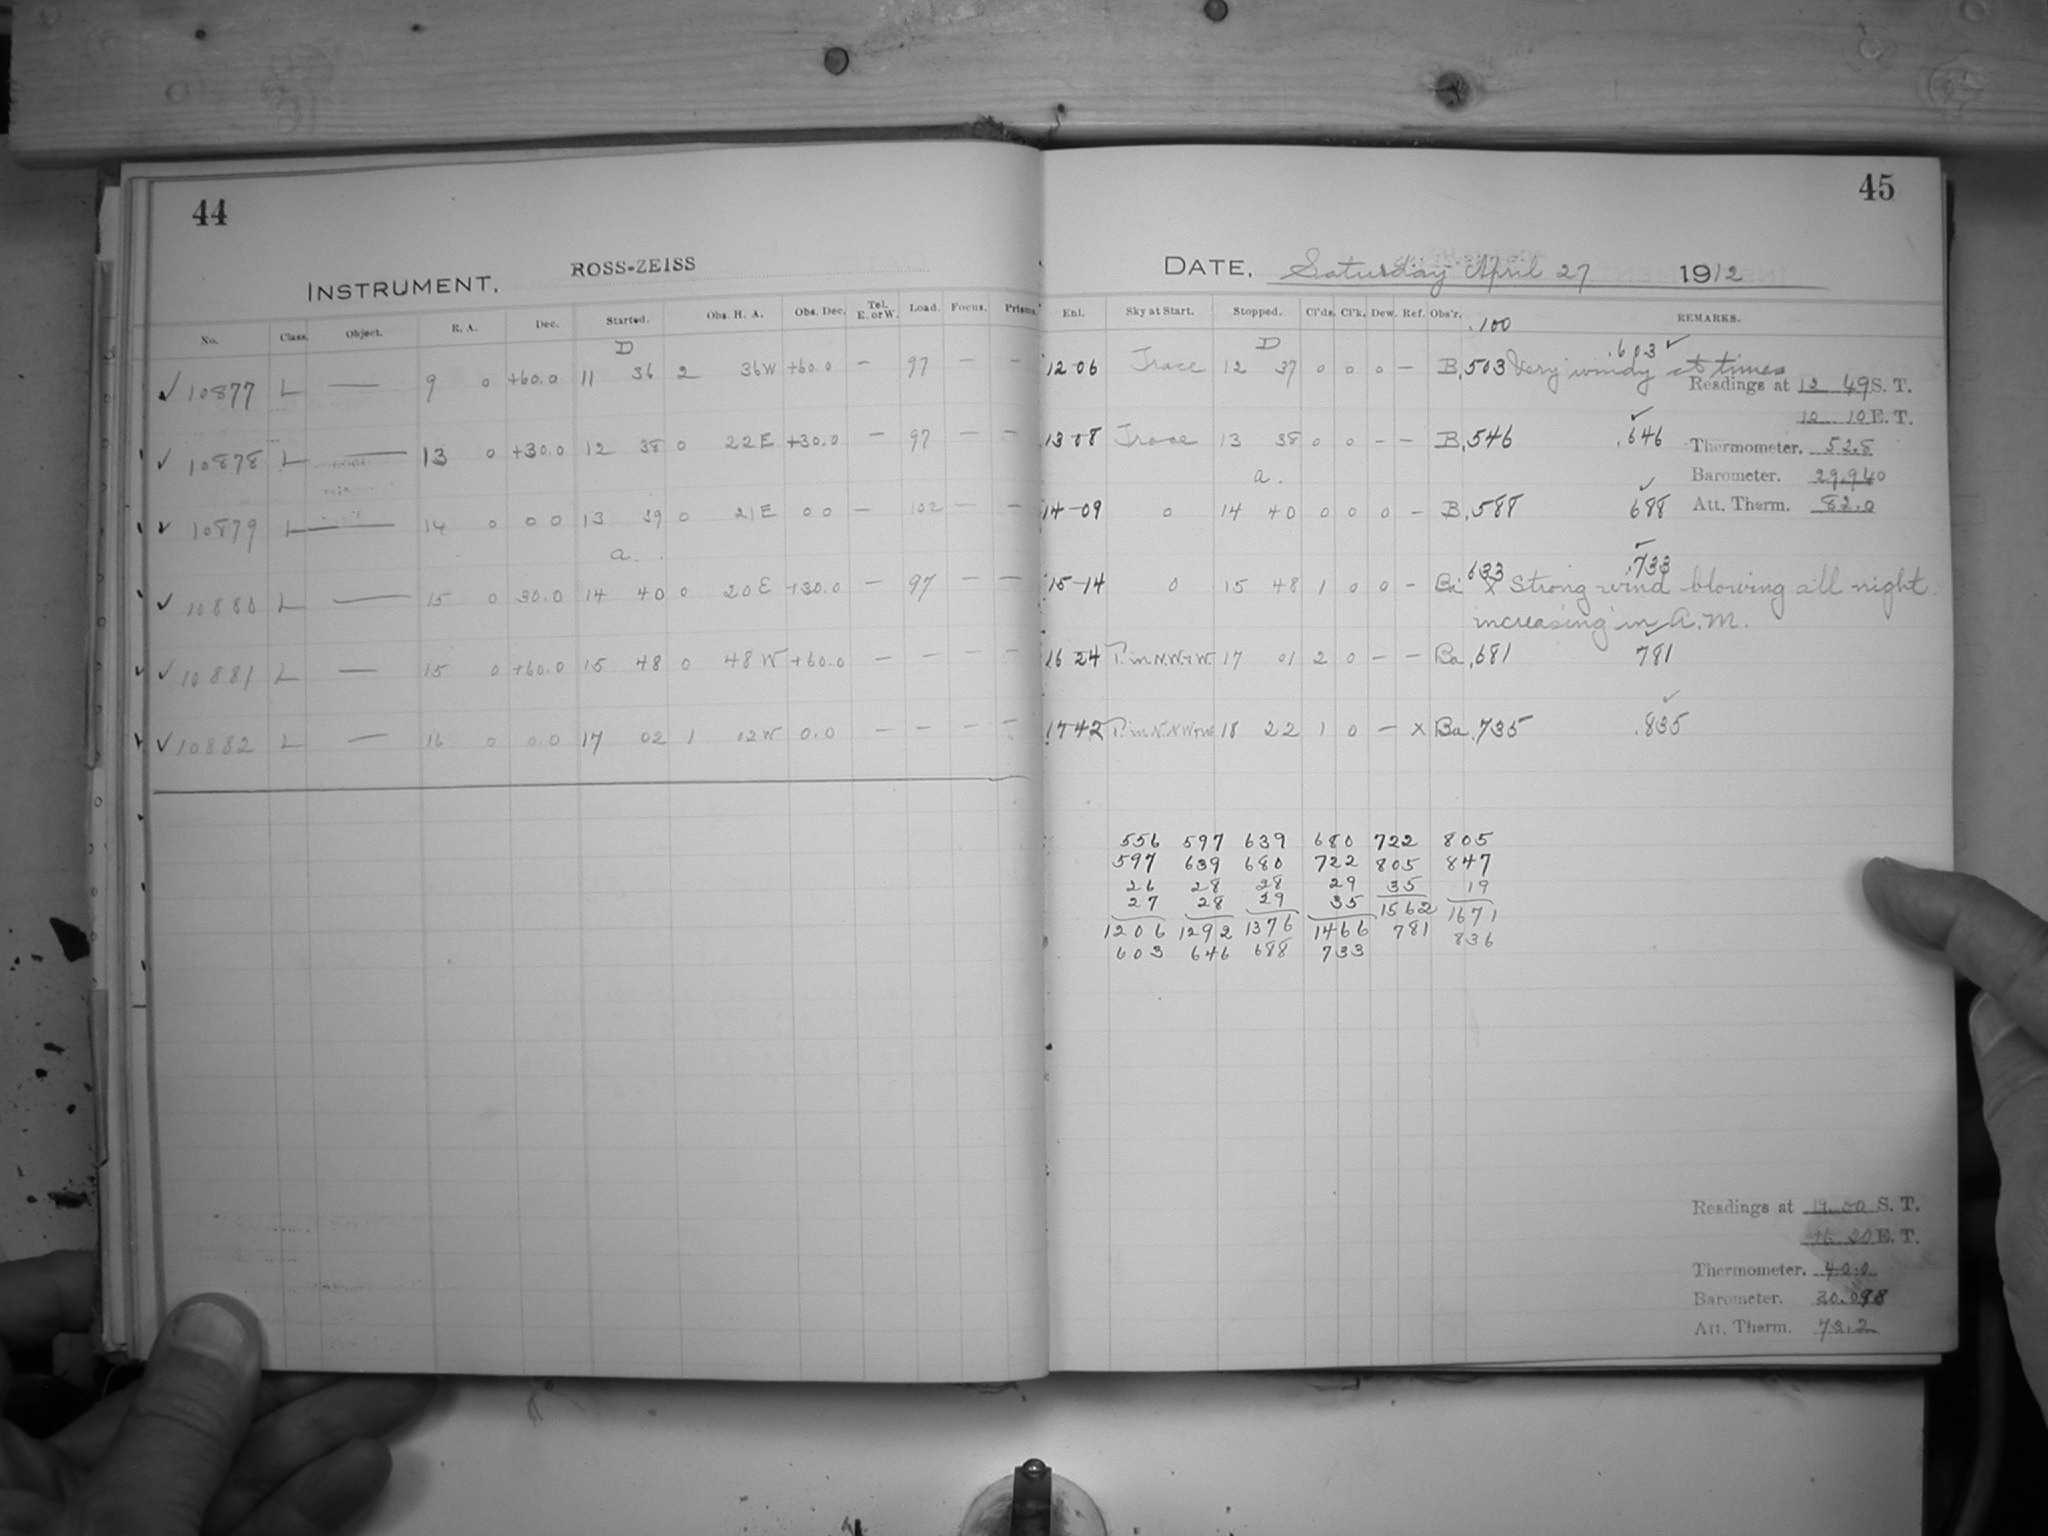 44
INSTRUMENT. ROSS-ZEISS
No. Class. Object. R. A. Dec. Started. Obs. H. A. Obs. Dec. Tel. E. or W. Load. Focus. Prisms.
D
✓ 10877 L — 9 0 +60.0 11 36 2 36W +60.0 — 97 — —
✓ 10878 L — 13 0 +30.0 12 38 0 22E +30.0 — 97 — —
✓ 10879 L — 14 0 0 0 13 39 0 21E 0 0 — 102 — —
a.
✓ 10880 L — 15 0 30.0 14 40 0 20E +30.0 — 97 — —
✓ 10881 L — 15 0 +60.0 15 48 0 48W +60.0 — — — —
✓ 10882 L — 16 0 0.0 17 02 1 02W 0.0 — — — —
45
DATE. Saturday April 27 1912
Enl. Sky at Start. Stopped. Cl'ds. Cl'k. Dew. Ref. Obs'r. .100 REMARKS.
D
12 06 Trace 12 37 0 0 0 — B .503 Very windy at times .603 ✓
Readings at 12 49 S. T.
10 10 E. T.
13 08 Trace 13 38 0 0 — — B .546 .646 ✓
Thermometer. 52.8
Barometer. 29.940
a.
14-09 0 14 40 0 0 0 — B .588 688 ✓
Att. Therm. 82.0
633 .733 ✓
15-14 0 15 48 1 0 0 — Ba X Strong wind blowing all night
increasing in A.M.
16 24 T. in N.W.+W. 17 01 2 0 — — Ba .681 781 ✓
17 42 T. in N.NW+W 18 22 1 0 — X Ba .735 .835 ✓
556 597 639 680 722 805
597 639 680 722 805 847
26 28 28 29 35 19
27 28 29 35 1562 1671
1206 1292 1376 1466 781 836
603 646 688 733
Readings at 19.00 S. T.
16 20 E. T.
Thermometer. 42.0
Barometer. 30.098
Att. Therm. 73.2